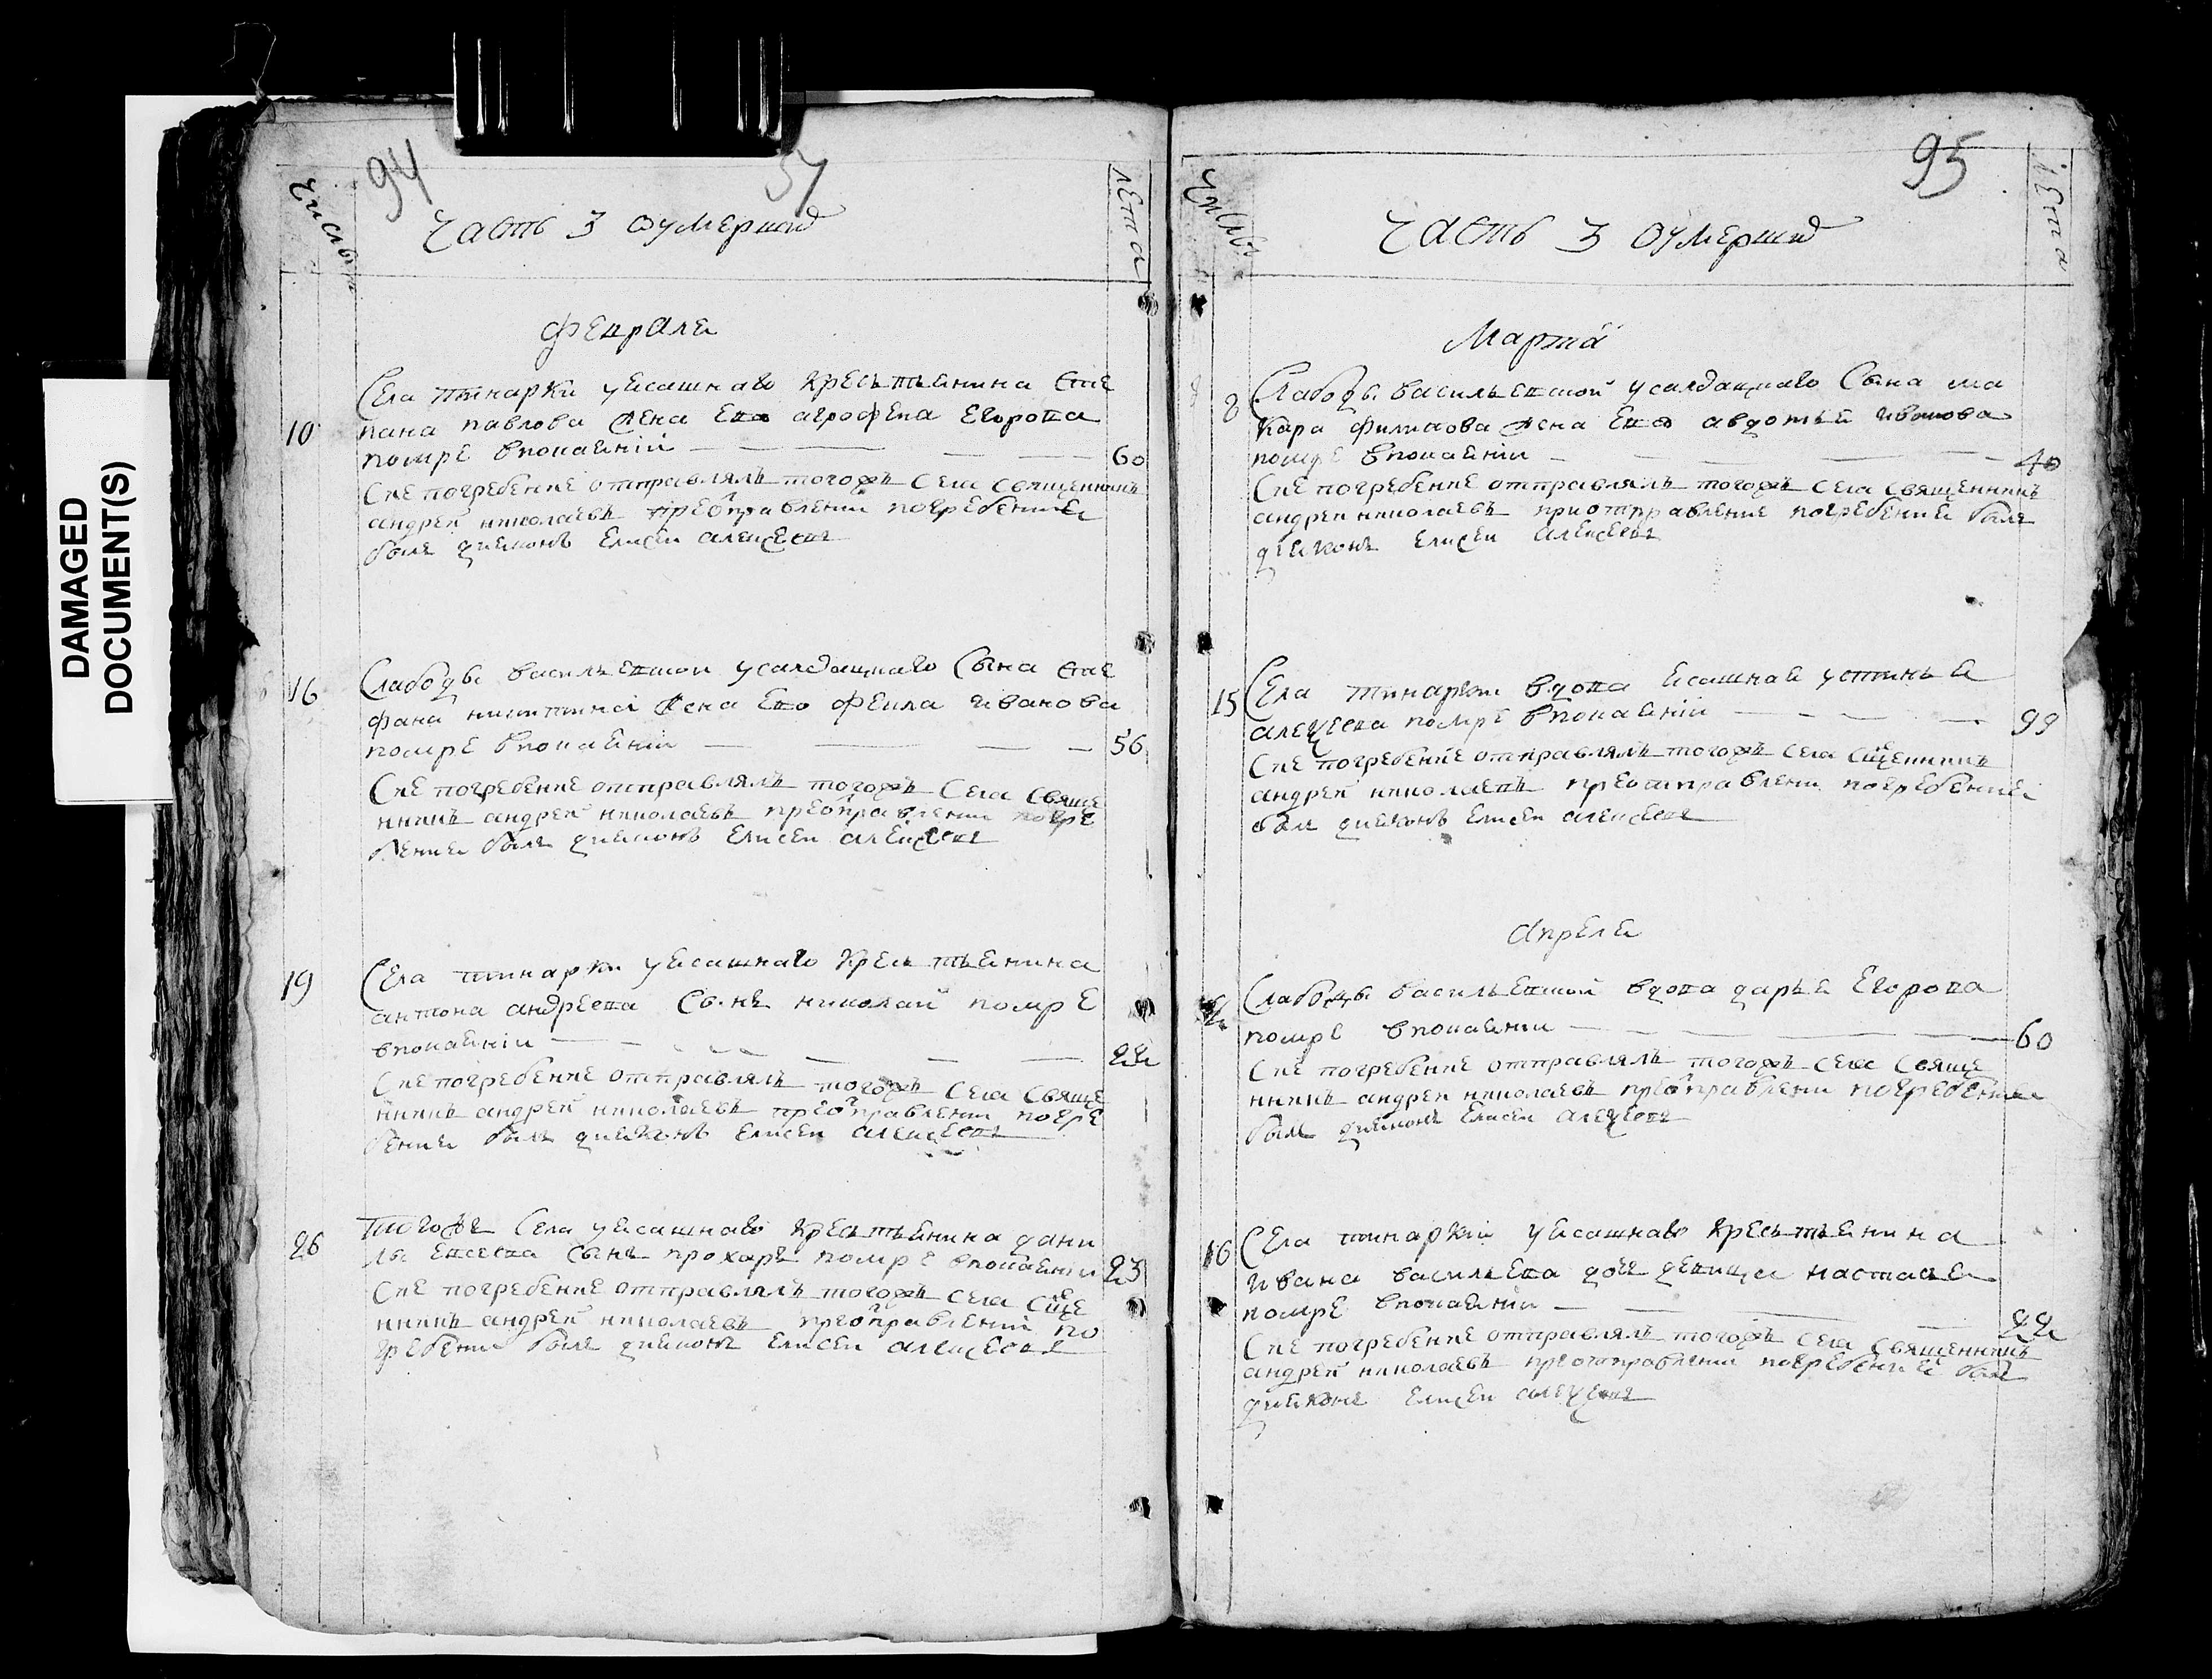 DAMAGED
DOCUMENT(S)
94
Числы
Часть 3 оумершихъ
лета
февраля
10
Села тинарки уясашнаго крестьянина сте
пана павлова жена ево агрофена егорова
помре впокаянiи 60
Сие погребение отправлялъ тогожъ села священникъ
андреи николаевъ преотправлении погребения
былъ дияконъ елисеи алексеевъ
16
Слабоды васильевскои усалдацкаго сына сте
фана никитина жена ево фекла иванова
помре впокаянiи 56
Сие погребение отправлялъ тогожъ села свяще
нникъ андреи николаевъ преотправлении погре
бения былъ дияконъ елисеи алексеевъ
19
Села тинарки уясашнаго крестьянина
антона андреева сынъ николаи помре
впокаянiи 22
Сие погребение отправлялъ тогожъ села свяще
нникъ андреи николаевъ преотправлении погре
бения былъ дияконъ елисеи алексеевъ
26
тогожъ села уясашнаго крестьянина дани
лы евсеева сынъ прохаръ помре впокаянiи 23
Сие погребение отправлялъ тогожъ села сщще
нникъ андреи николаевъ преотправлении по
гребени былъ дияконъ елисеи алексеевъ
95
Числы
Часть 3 оумершихъ
лета
Марта
8
Слабоды васильевской усалдацкаго сына ма
кара филипова жена ево авдотья иванова
помре впокаянiи 40
Сие погребение отправлялъ тогожъ села священникъ
андреи николаевъ приотправление погребения былъ
дияконъ елисеи алексеевъ
15
Села тинарки вдова ясашная устинья
алексеева помре впокаянiи 99
Сие погребение отправлялъ тогожъ села сщенникъ
андреи николаевъ преотправлени погребения
былъ дияконъ елисеи алексеевъ
апреля
2
Слабоды васильевской вдова дарья егорова
помре впокаянiи 60
Сие погребение отправлялъ тогожъ села свяще
нникъ андреи николаевъ преотправлени погребения
былъ дияконъ елисеи алексеевъ
16
Села тинаркiи уясашнаго крестьянина
ивана васильева дочь девица настасья
помре впокаянiи 22
Сие погребение отправлялъ тогожъ села священникъ
андреи николаевъ преотправлении погребения былъ
дияконъ елисеи алексеевъ